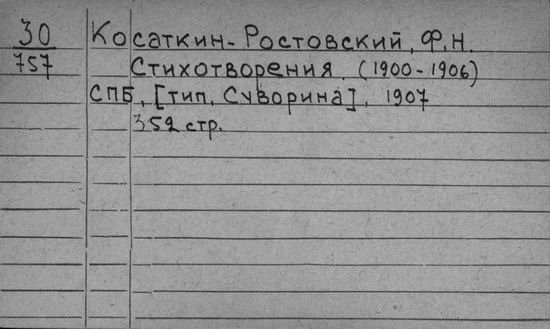 30 Косаткин-Ростовский, Ф.Н.
757 Стихотворения. (1900-1906)
СПБ, [тип. Суворина], 1907
352 стр.